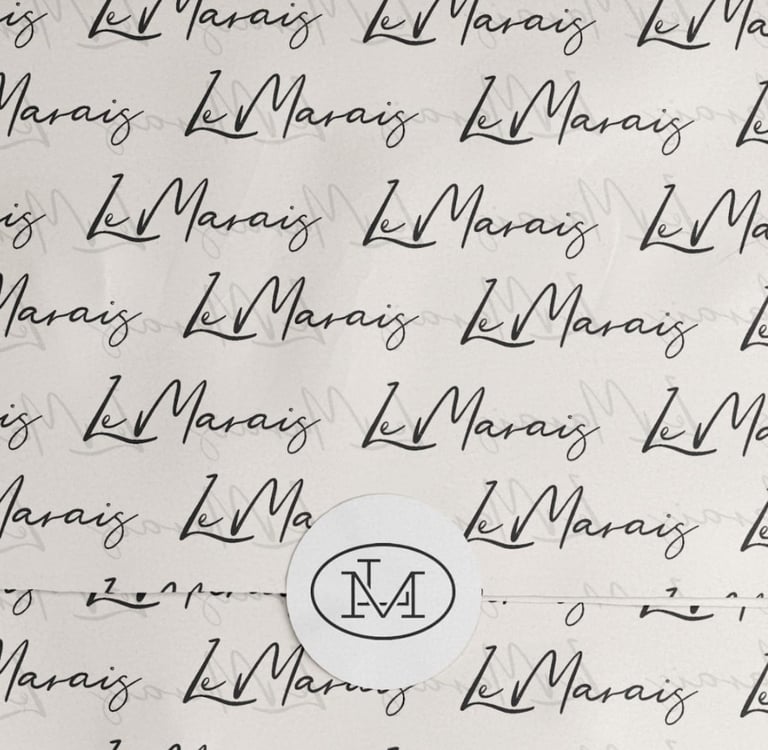 is Le Marais Le Marais Le Ma
Marais Le Marais Le Marais Le
is Le Marais Le Marais Le Ma
Marais Le Marais Le Marais Le
is Le Marais Le Marais Le Ma
Marais Le Ma Le Marais Le
LM
Marais Le Marais Le Marais Le